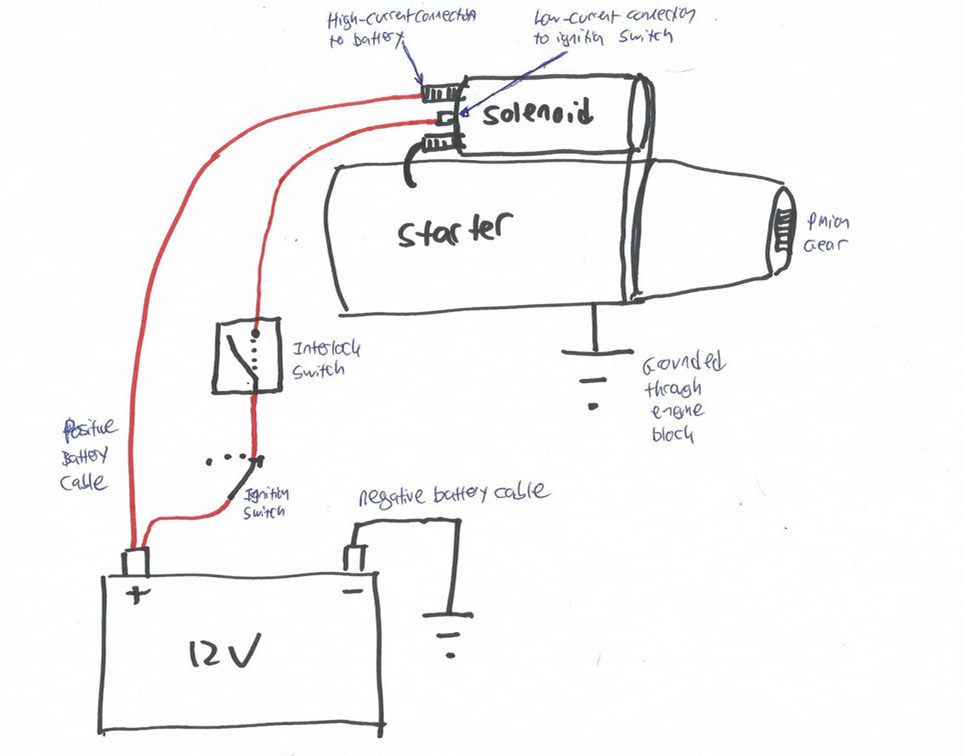 High-current connection
to battery
Low-current connection
to ignition switch
Solenoid
Starter
Pinion
Gear
Interlock
Switch
Grounded
through
engine
block
Positive
Battery
Cable
Ignition
Switch
negative battery cable
+
-
12V